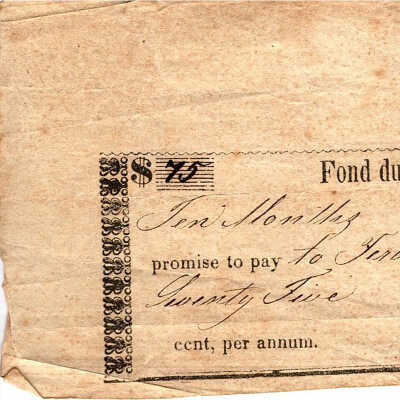 $ 75 Fond du
Ten Months
promise to pay to
Seventy Five
cent, per annum.